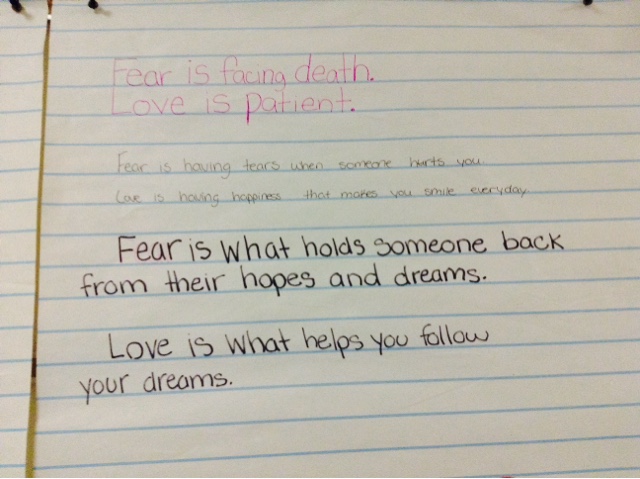 Fear is facing death.
Love is patient.
Fear is having tears when someone hurts you.
Love is having happiness that makes you smile everyday.
Fear is what holds someone back
from their hopes and dreams.
Love is what helps you follow
your dreams.